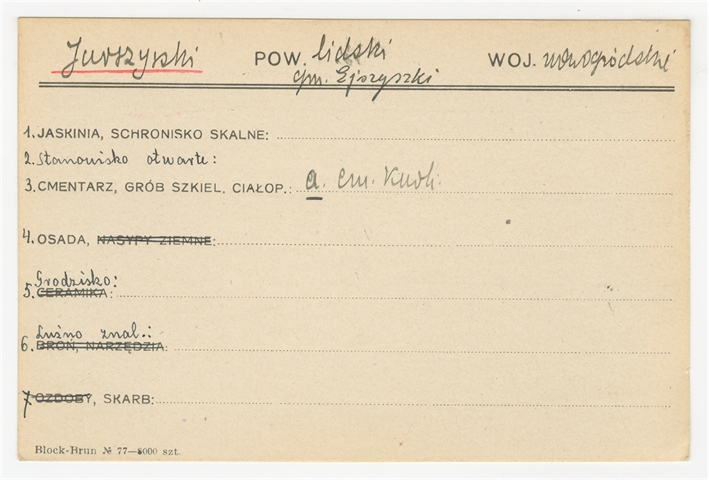 Jurszyszki POW. lidski WOJ. nowogródzki
gm. Ejszyszki
1. JASKINIA, SCHRONISKO SKALNE:
2. Stanowisko otwarte:
3. CMENTARZ, GRÓB SZKIEL. CIAŁOP.: a. cm. Kurh.
4. OSADA, NASYPY ZIEMNE:
Grodzisko:
5. CERAMIKA:
Luźno znal.:
6. BROŃ, NARZĘDZIA:
7. OZDOBY, SKARB:
Block-Brun № 77—8000 szt.